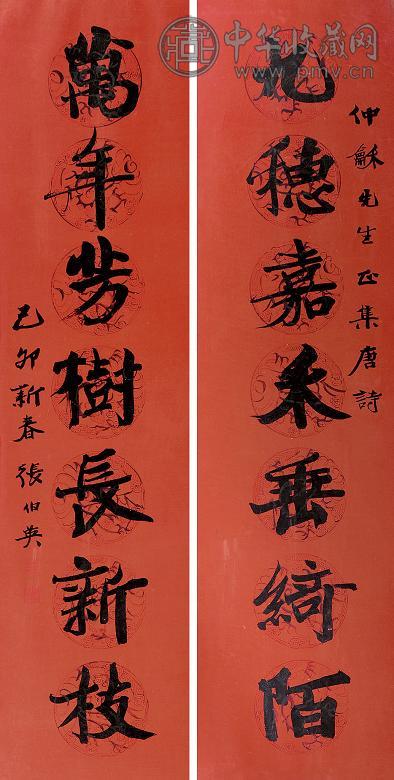 中华收藏网
www.pmv.cn
仲龢先生正集唐詩
九穗嘉禾垂綺陌
萬年芳樹長新枝
己卯新春張伯英